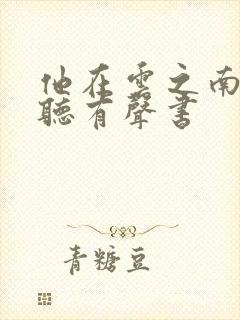 他在雲之南
聽有聲書
青糖豆